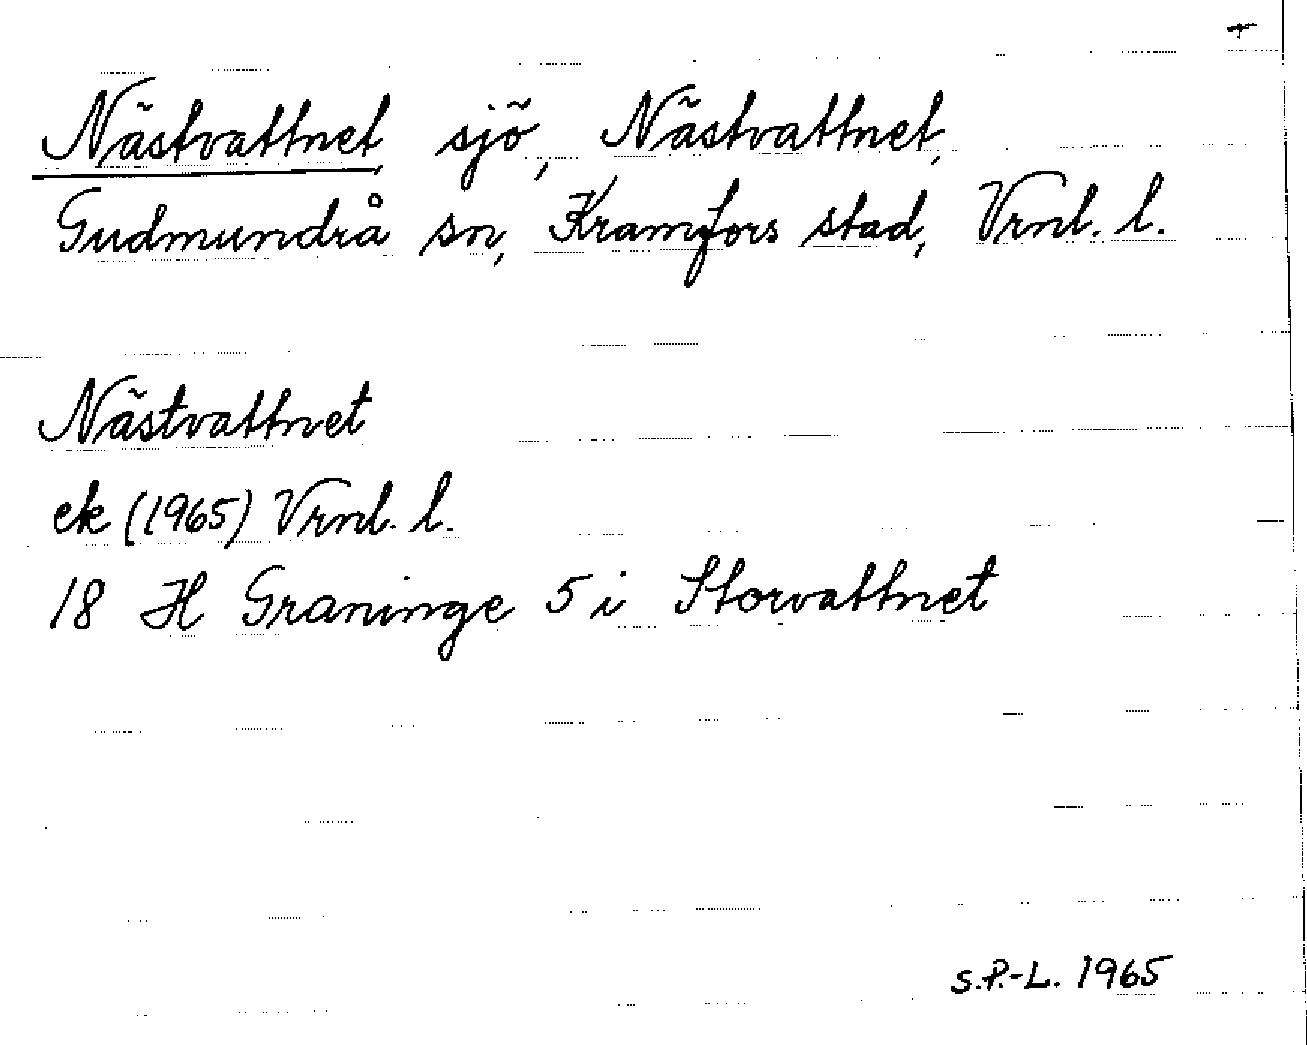 Nästvattnet, sjö, Nästvattnet,
Gudmundrå sn, Kramfors stad, Vrnl. l.
Nästvattnet
ek (1965) Vrnl. l.
18 H Graninge 5 i Storvattnet
S.P.-L. 1965